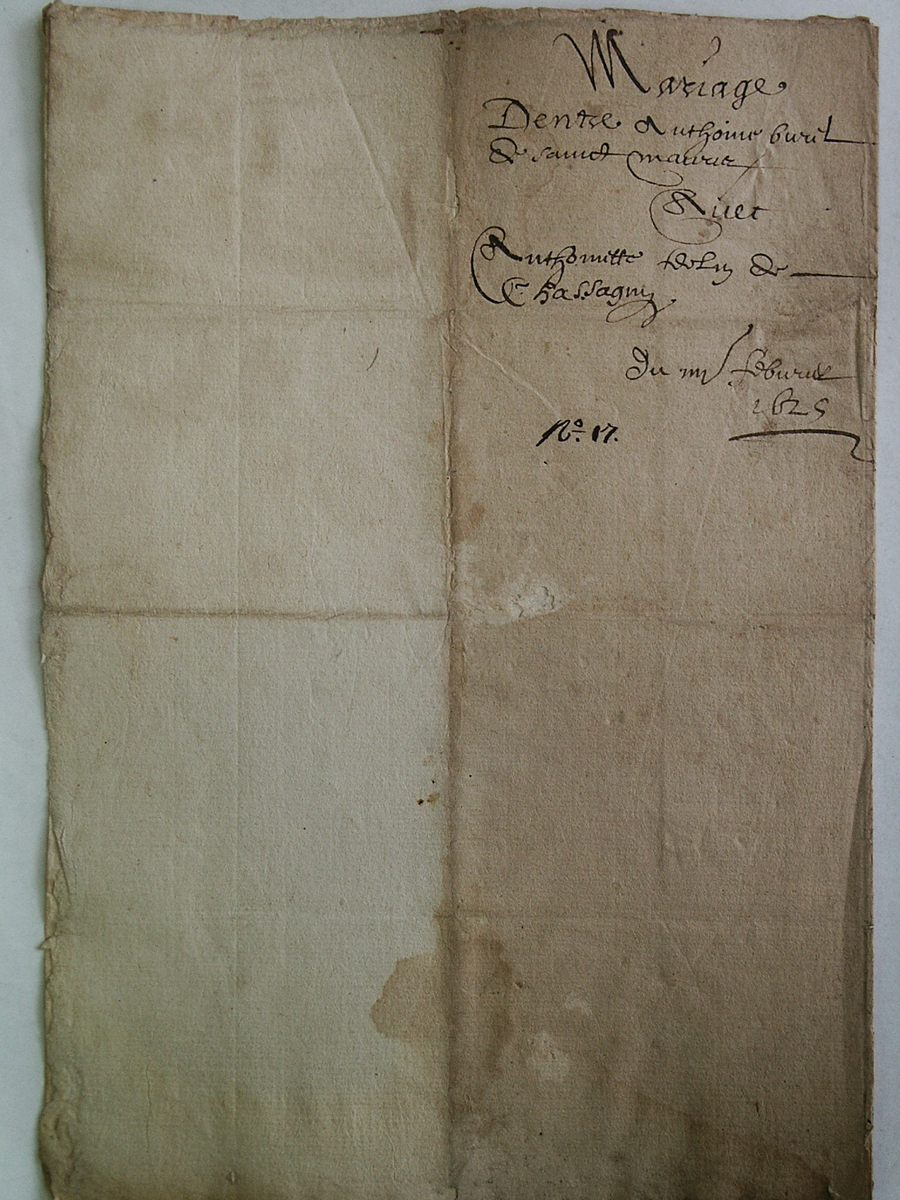 Mariage
Dentre Anthoine buril
de sainct maurice
Avec
Anthoinette de
Chassagny
Du feburier
1625
No. 17.